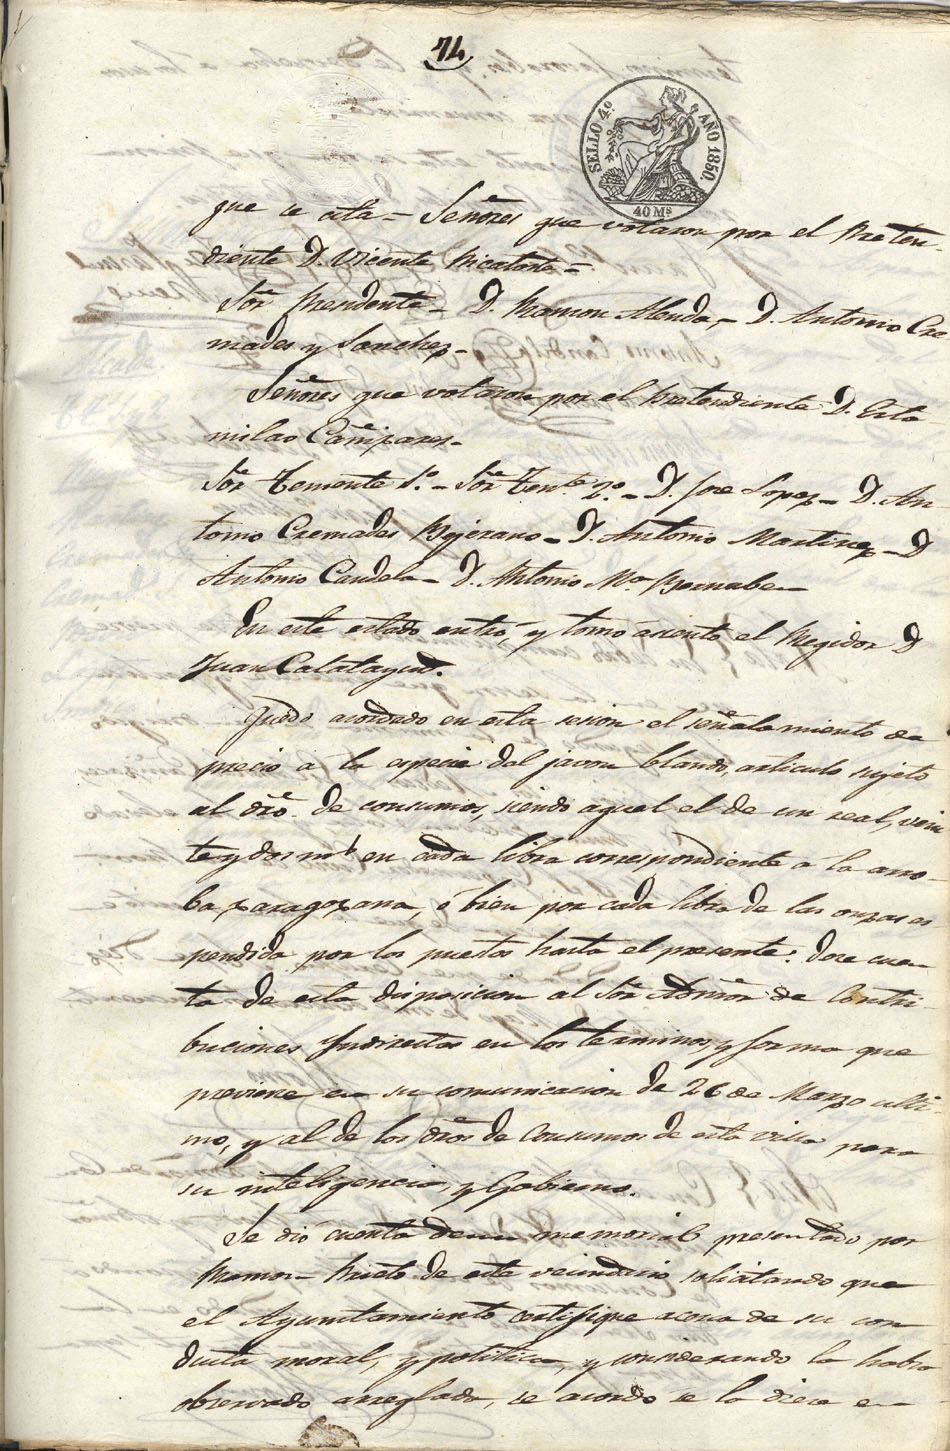 74
SELLO 4.º AÑO 1850
40 Ms
que se cita = Señores que votaron por el Preten
diente D. Vicente Picatoste =
Sor. Presidente = D. Ramon Alenda, = D. Antonio Cre
mades y Sanchez =
Señores que votaron por el Pretendiente D. Esta
nislao Cañizares =
Sor. Teniente 1º = Sor. Tente. 2º = D. Jose Lopez = D. An
tonio Cremades Bejerano = D. Antonio Martinez = D
Antonio Candela = D. Antonio Mª Bernabe =
En este estado entró, y tomó asiento el Regidor D
Juan Calatayud.
Quedó acordado en esta sesion el señalamiento de
precio a la especie del javon blando, articulo sujeto
al dro. de consumos, siendo aquel el de un real, vein
te y dos ms en cada libra correspondiente a la arro-
ba zaragozana, ó bien por cada libra de las onzas es
pendida por los puestos hasta el presente: dose cuen
ta de esta disposicion al Sor. Admor de Contri
buciones Indirectas en los terminos, y forma que
previene en su comunicacion de 26 de Marzo ulti-
mo, y al de los dros de Consumos de esta villa para
su inteligencia, y Gobierno.
Se dió cuenta de un memorial presentado por
Ramon Prieto de este vecindario solicitando que
el Ayuntamiento certifique acerca de su con
ducta moral, y politica, y considerando la habia
observado arreglada, se acordó se la diera en